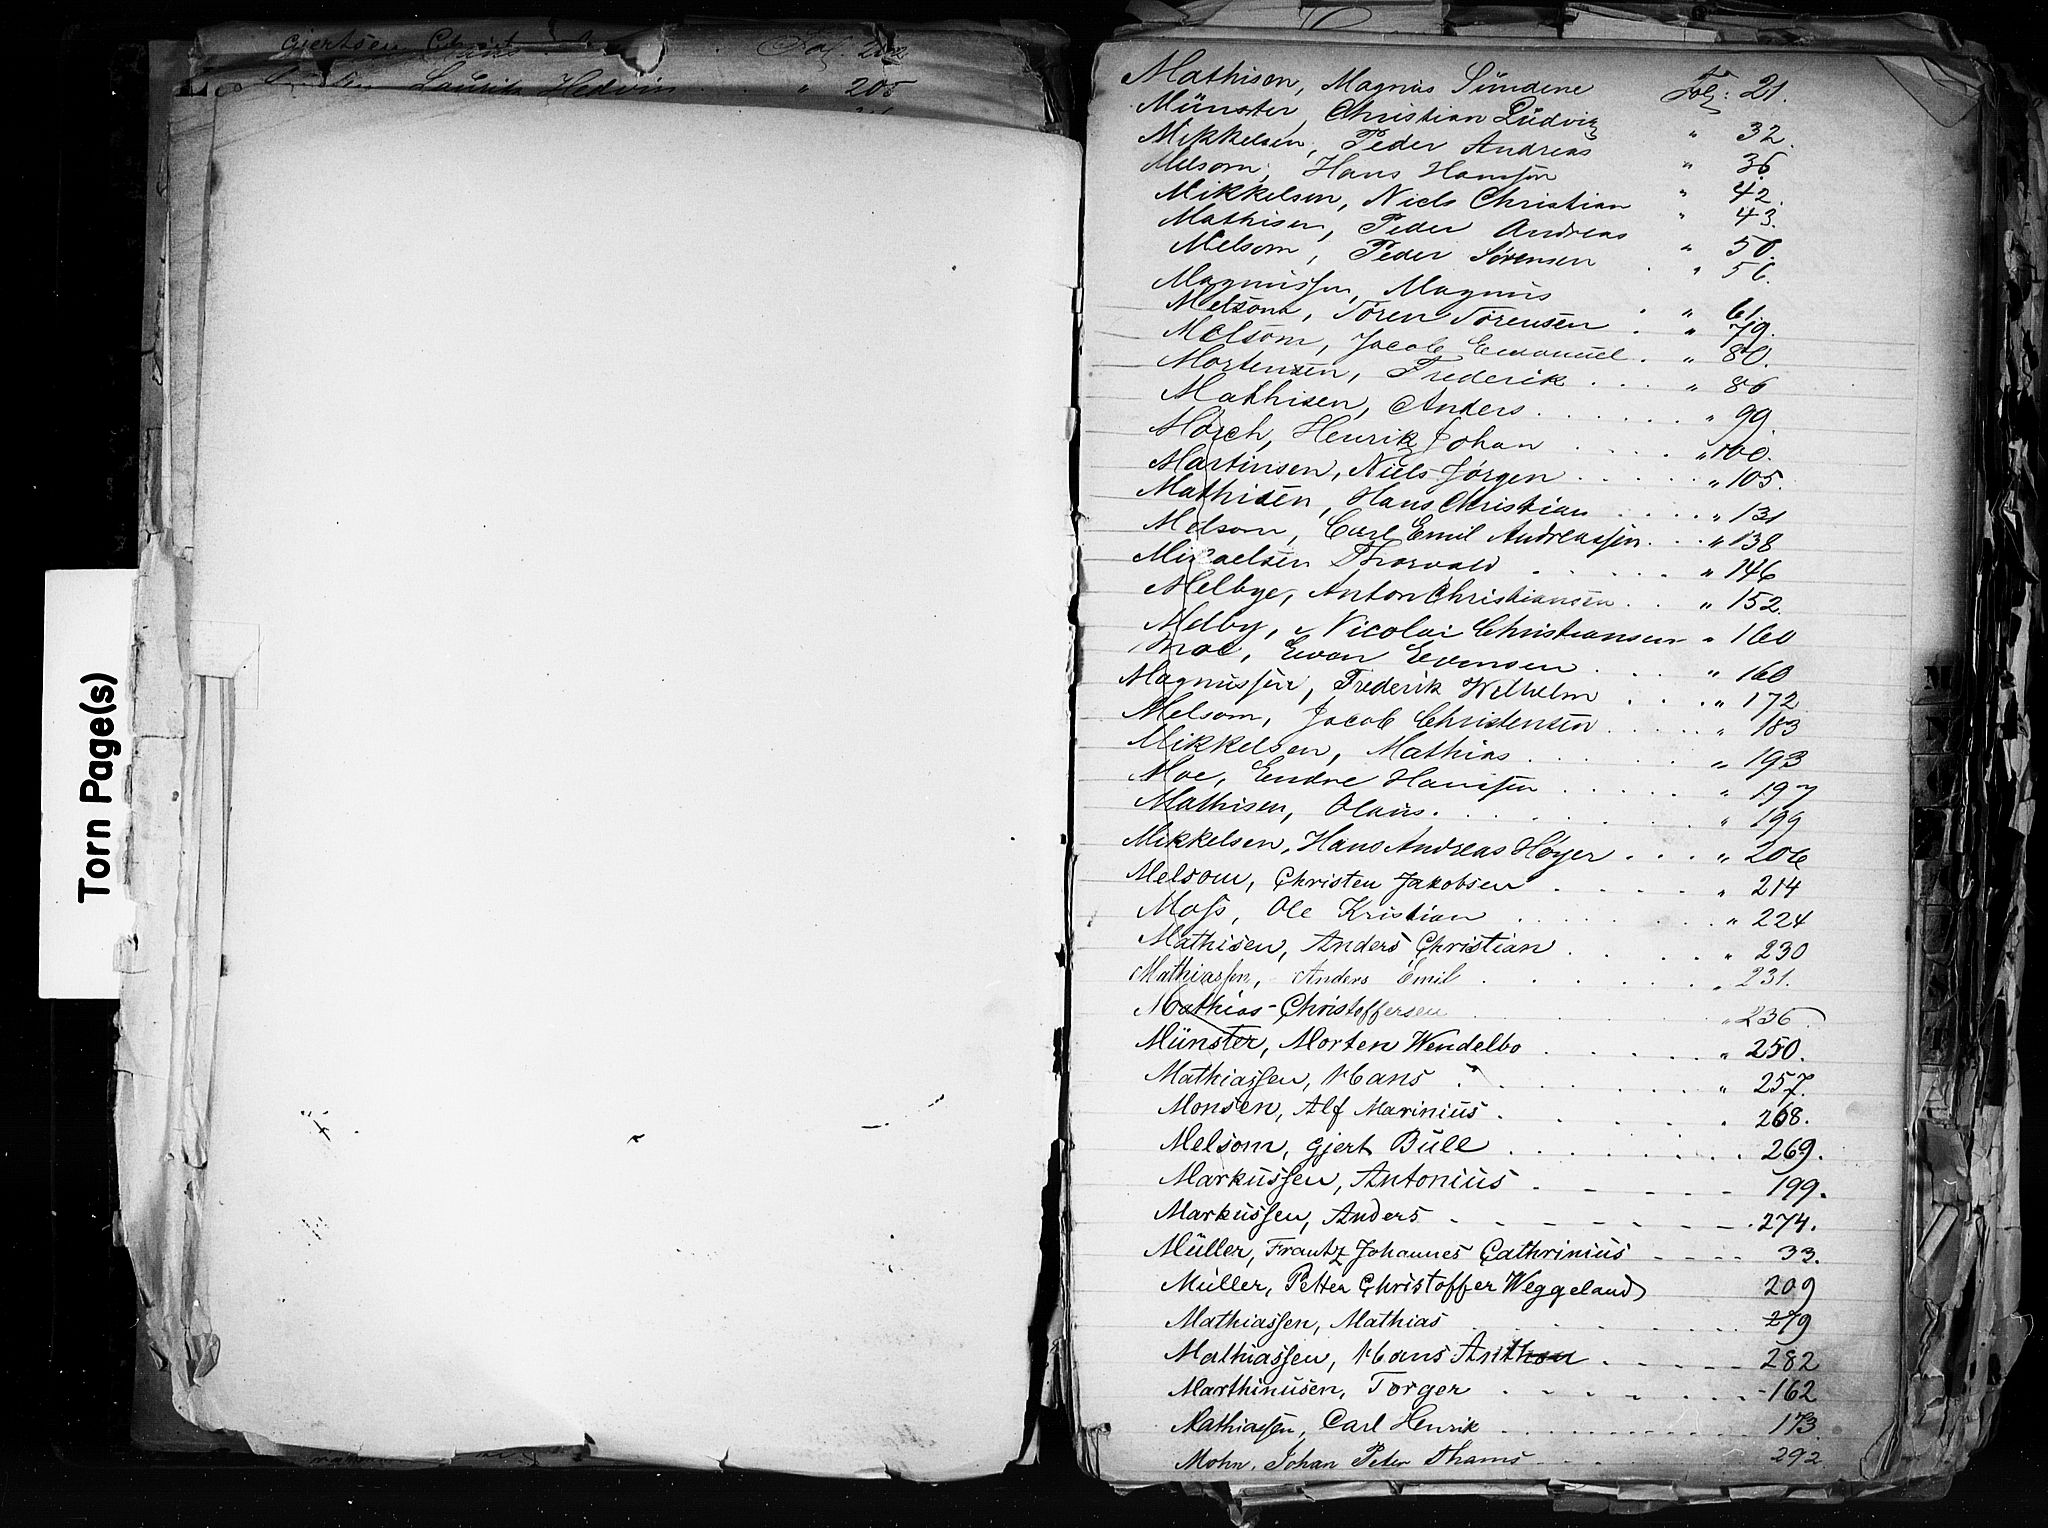 Gjertsen Fol. 202
Laurits Hedvin " 205
Torn Page(s)
Mathisen, Magnus Sundene Fol: 21.
Münster, Christian Ludvig " 32.
Mikkelsen, Peder Andreas " 36
Melsom, Hans Hansen " 42.
Mikkelsen, Niels Christian " 43.
Mathisen, Peder Andreas " 50.
Melsom, Peder Sørensen . " 56.
Magnussen, Magnus . " 61.
Melsom, Sören Sörensen . " 79.
Melsom, Jacob Emanuel . " 80.
Mortensen, Frederik . . . " 86
Mathisen, Anders . . . . . " 99.
Hørch, Henrik Johan . . . . " 100.
Martinsen, Niels Jørgen . . . . . " 105.
Mathisen, Hans Christian . . . . " 131
Melsom, Carl Emil Andreassen . . . " 138
Micaelsen Thorvald . . . . . " 146
Melbye, Anton Christiansen . . " 152.
Melby, Nicolai Christiansen " 160
Moe, Evan Evensen . . . " 160
Magnussen, Frederik Wilhelm . . . . " 172
Melsom, Jacob Christensen . . . . " 183
Mikkelsen, Mathias . . . . . . " 193
Moe, Endre Hansen . . . . . " 197
Mathisen, Olaus . . . . . . . " 199
Mikkelsen, Hans Andreas Høyer . . . " 206
Melsom, Christen Jakobsen . . . . . " 214
Moss, Ole Kristian . . . . . . " 224
Mathisen, Anders Christian . . . . . " 230
Mathiassen, Anders Emil . . . . . . " 231.
Mathias Christoffersen . . . . . . " 236.
Münster, Morten Wendelbo . . . . . " 250.
Mathiassen, Hans . . . . . . . " 257.
Monsen, Alf Marinius . . . . . . 268.
Melsom, Gjert Bull . . . . . . . . 269.
Markussen, Antonius . - - - - - 199.
Markussen, Anders - - - - - - - . 274.
Müller, Frantz Johannes Cathrinius - - - - 33.
Müller, Petter Christoffer Weggeland 209
Mathiassen, Mathias . . . . . . . 279
Mathiassen, Hans Anthon . . . - - - 282
Marthinusen, Torger . - - - - - - 162
Mathiassen, Carl Henrik . . . . . . . 173.
Mohn, Johan Peter Thams - - - . 292.
M